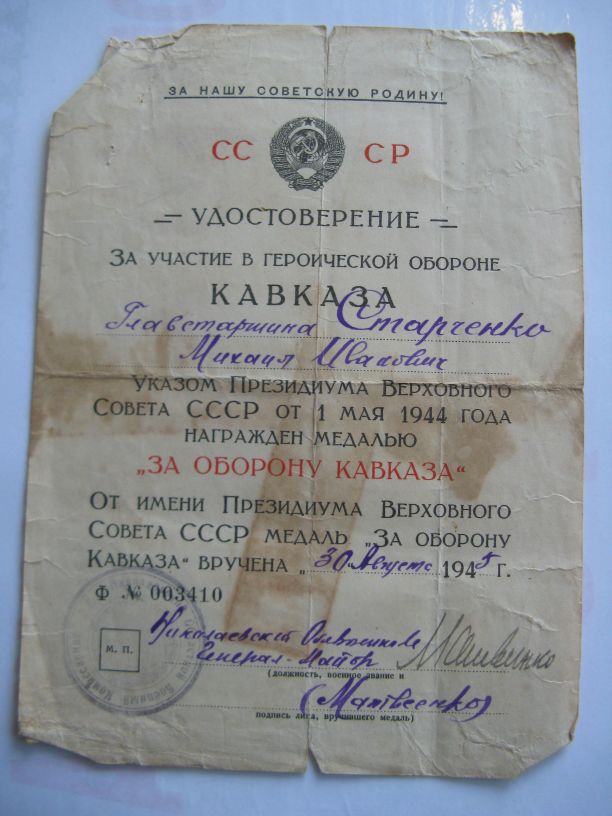 ЗА НАШУ СОВЕТСКУЮ РОДИНУ!
СС СР
УДОСТОВЕРЕНИЕ
ЗА УЧАСТИЕ В ГЕРОИЧЕСКОЙ ОБОРОНЕ
КАВКАЗА
Главстаршина Старченко
Михаил Иванович
УКАЗОМ ПРЕЗИДИУМА ВЕРХОВНОГО
СОВЕТА СССР ОТ 1 МАЯ 1944 ГОДА
НАГРАЖДЕН МЕДАЛЬЮ
„ЗА ОБОРОНУ КАВКАЗА“
ОТ ИМЕНИ ПРЕЗИДИУМА ВЕРХОВНОГО
СОВЕТА СССР МЕДАЛЬ „ЗА ОБОРОНУ
КАВКАЗА“ ВРУЧЕНА „30 Августа 1945 г.
Ф № 003410
Николаевский Облвоенком
М. П.
Генерал-Майор
(должность, военное звание и
(Матвеенко)
подпись лица, вручившего медаль)